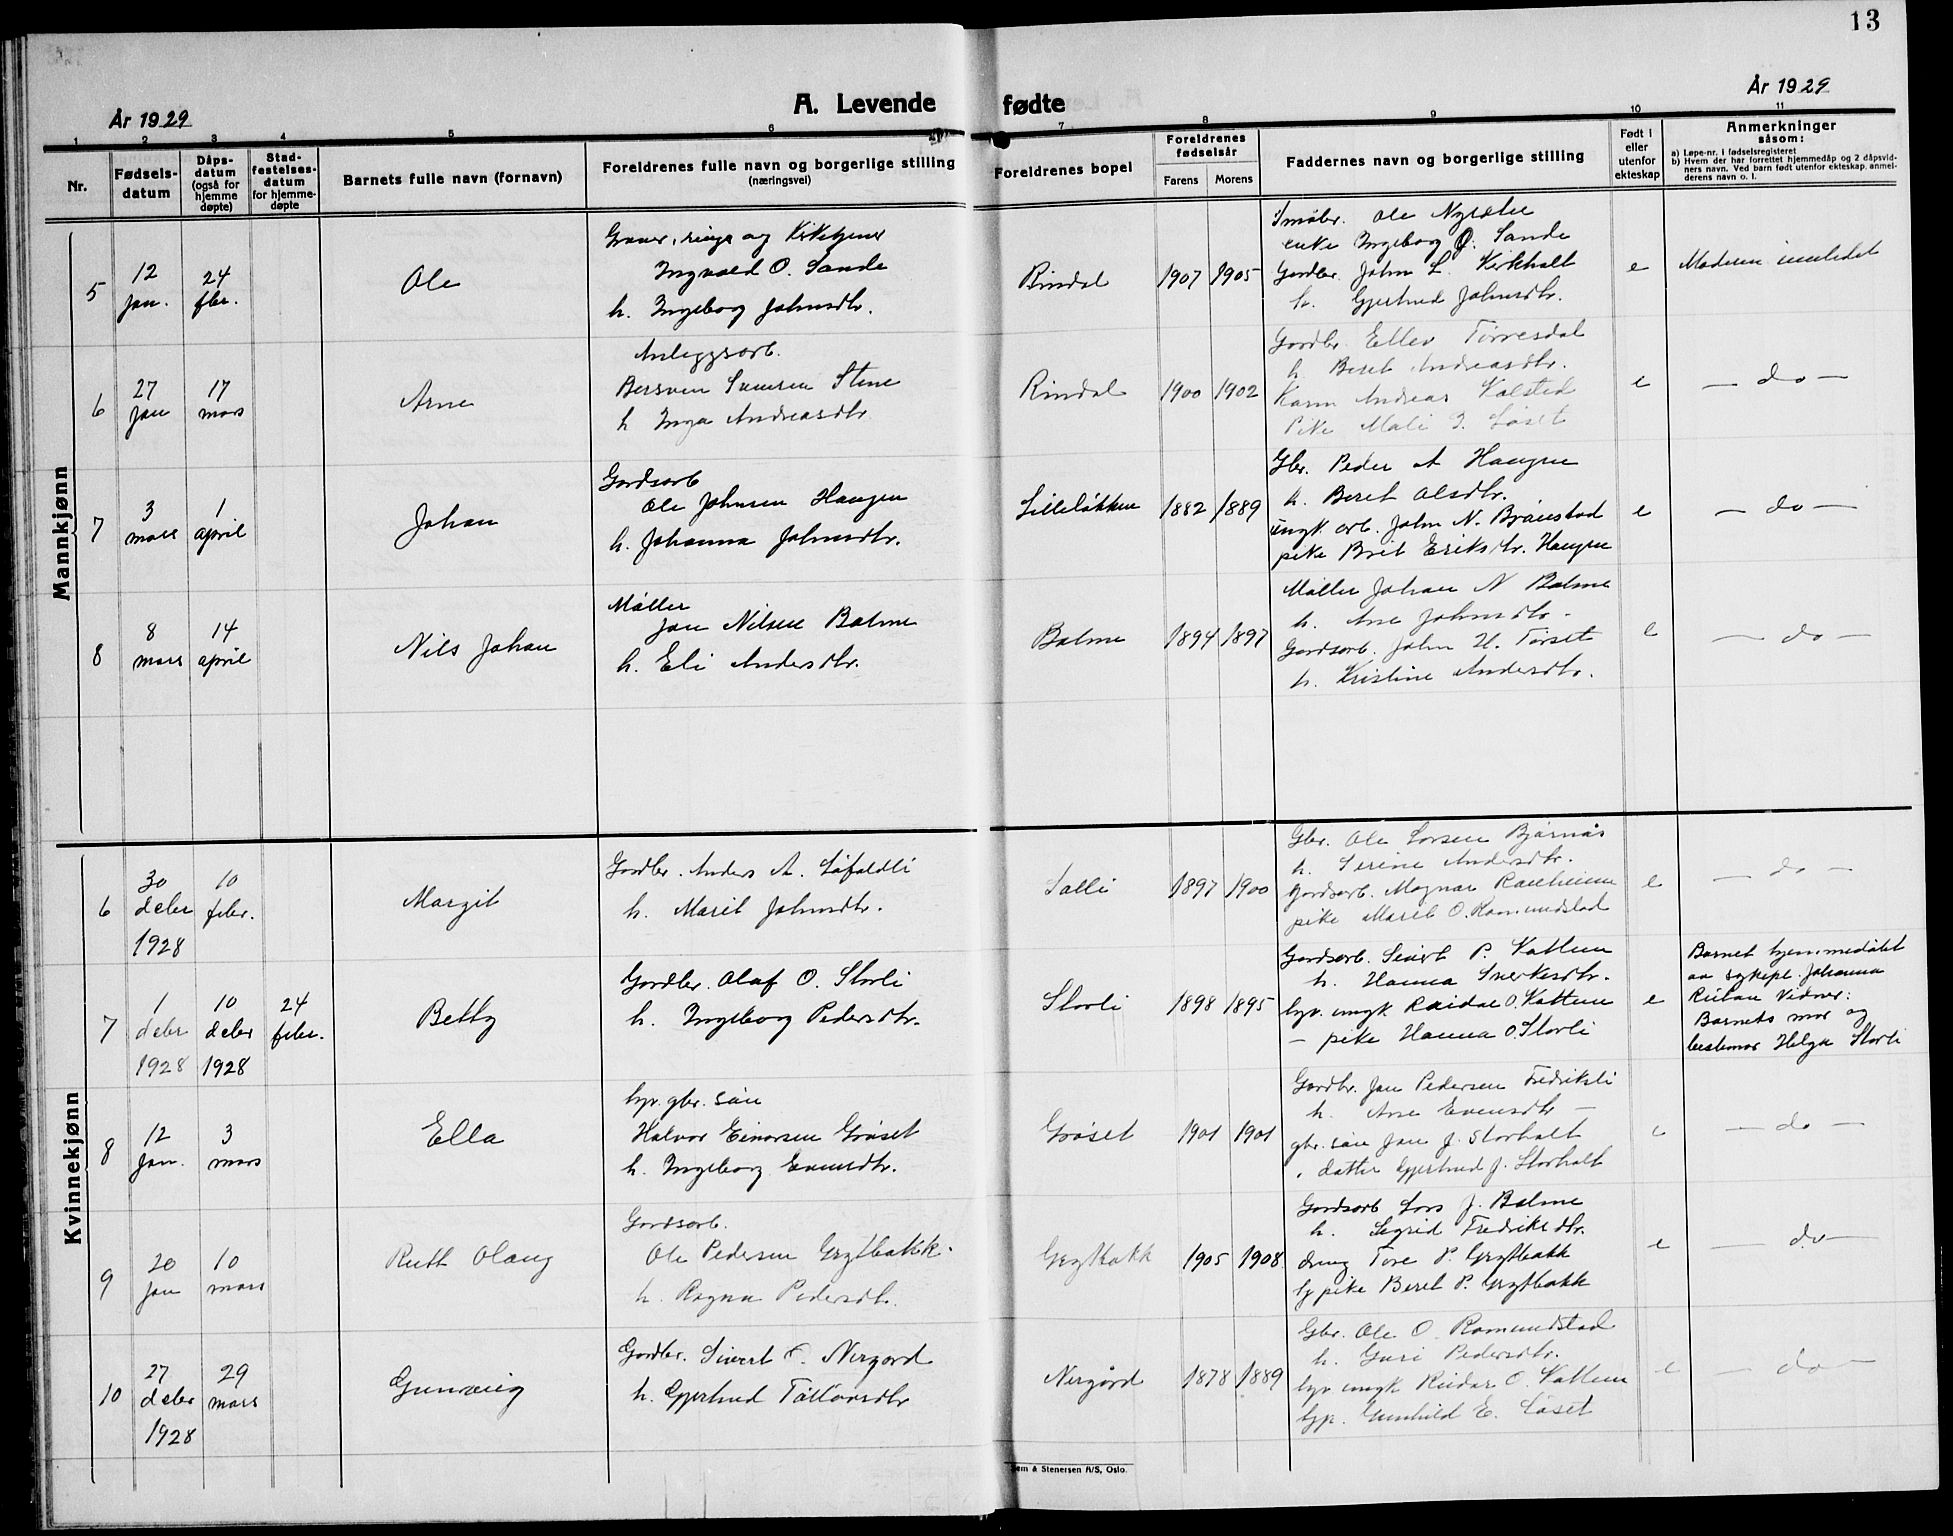 13
År 1929
A. Levende fødte
År 1929
1 2 3 4 5 6 7 8 9 10 11
Nr.
Fødsels-
datum
Dåps-
datum
(også for
hjemme
døpte)
Stad-
festelses-
datum
for hjemme-
døpte
Barnets fulle navn (fornavn)
Foreldrenes fulle navn og borgerlige stilling
(næringsvei)
Foreldrenes bopel
Foreldrenes
fødselsår
Farens Morens
Faddernes navn og borgerlige stilling
Født i
eller
utenfor
ekteskap
Anmerkninger
såsom:
a) Løpe-nr. i fødselsregisteret
b) Hvem der har forrettet hjemmedåp og 2 dåpsvid-
ners navn. Ved barn født utenfor ekteskap, anmel-
derens navn o. l.
Mannkjønn
5
12
jan.
24
fbr.
Ole
og
Ingvald O. Sande
h. Ingeborg Johnsdtr.
Rindal
1907 1905
Småbr. Ole
enke Ingeborg O. Sande
Gardbr. John L. Kirkholt
h. Gjertrud Johnsdtr.
e
Moderen innledet
6
27
jan
17
mars
Arne
Anleggsarb.
Bersven Stene
h Inga Andreasdtr
Rindal
1900 1902
Gardbr. Ellev Torresdal
h. Beret Andreasdtr.
Andreas Kalstad
Pike Mali I. Løset
e
— do —
7
3
mars
1
april
Johan
Gardsarb
Ole Johnsen Haugen
h. Johanna Johnsdtr.
Lilleløkken
1882 1889
Gbr. Peder A Haugen
h. Beret Olsdtr.
ungk. arb. John N. Brånstad
pike Brit Eriksdtr. Haugen
e
— do —
8
8
mars
14
april
Nils Johan
Møller
Jon Nilsen Bolme
h. Eli Andersdtr.
Bolme
1894 1897
Møller Johan N Bolme
h. Ane Johnsdtr -
Gardsarb. John H. Torset
h. Kristine Andersdtr.
e
— do —
Kvinnekjønn
6
30
debr
1928
10
febr.
Margit
Gardbr. Anders A. Løfaldli
h. Marit Johnsdtr.
Salli
1897 1900
Gbr. Ole Larsen Bjørnås
h. Serine Andersdtr.
Gardsarb. Magnar Ranheim
pike Marit O. Romundstad
e
— do —
7
1
debr
1928
10
debr
1928
24
febr.
Betty
Gardbr. Olaf O. Storli
h. Ingeborg Pedersdtr.
Storli
1898 1895
Gardsarb. Sivert P. Kattem
h. Hanna Sverkesdtr.
hjv. ungk Reidar O. Kattem
— pike Hanna O. Storli
e
Barnet hjemmedøbt
av sykepl. Johanna
Vidner:
Barnets mor og
bestemor Helga Storli
8
12
jan.
3
mars
Ella
hjv. gbr. søn
Halvor Einarsen Grøset
h. Ingeborg Evensdtr.
Grøset
1901 1901
Gardbr. Jon Pedersen Fredriksli
h. Ane Evensdtr —
gbr. søn Jon J. Storholt
. datter Gjertrud J. Storholt
e
— do —
9
20
jan
10
mars
Ruth Olaug
Gardsarb.
Ole Pedersen Grytbakk.
h. Ragna Pedersdtr.
Grytbakk
1905 1908
Gardsarb Lars J. Bolme
h. Sigrid Fredriksdtr.
dreng Tore P. Grytbakk
hj pike Beret P. Grytbakk
e
— do —
10
27
debr
1928
29
mars
Gunveig
Gardbr. Sivert O. Nergard
h. Gjertrud
Nergård
1878 1889
Gbr. Ole O. Romundstad
h. Guri Pedersdtr.
hjv ungk Reidar O. Kattem
hjp. Gunhild E. Løset
e
— do —
& Stenersen A/S, Oslo.